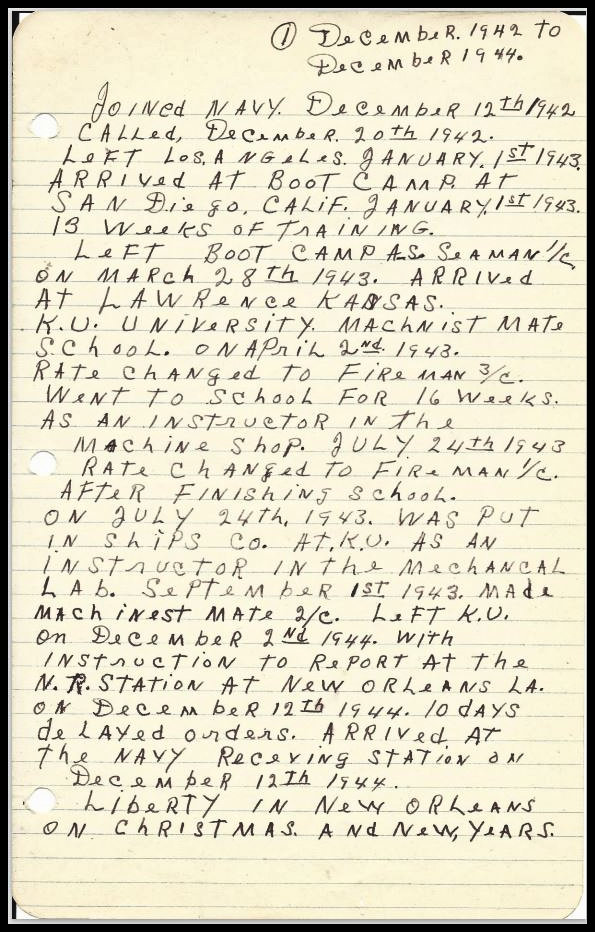 ① December. 1942 to
December 1944.
Joined Navy. December 12th 1942
Called, December. 20th 1942.
Left Los. Angeles. January. 1st 1943.
Arrived at Boot Camp. at
San Diego. Calif. January. 1st 1943.
13 Weeks of Training.
Left Boot Camp As. Seaman 1/c
on March 28th 1943. Arrived
at Lawrence Kansas.
K.U. University. Machnist Mate
School. on April 2nd. 1943.
Rate changed to Fireman 3/c.
Went to school for 16 Weeks.
As an instructor in the
Machine Shop. July 24th 1943
Rate changed to Fireman 1/c.
After finishing school.
on July 24th, 1943. was put
in ships Co. at, K.U. as an
instructor in the mechancal
Lab. September 1st 1943. made
machinest mate 2/c. Left K.U.
on December 2nd 1944. with
instruction to report at the
N.R. Station at New Orleans La.
on December 12th 1944. 10 days
delayed orders. Arrived at
the Navy Receving Station on
December 12th 1944.
Liberty in New Orleans
on Christmas. and New, Years.